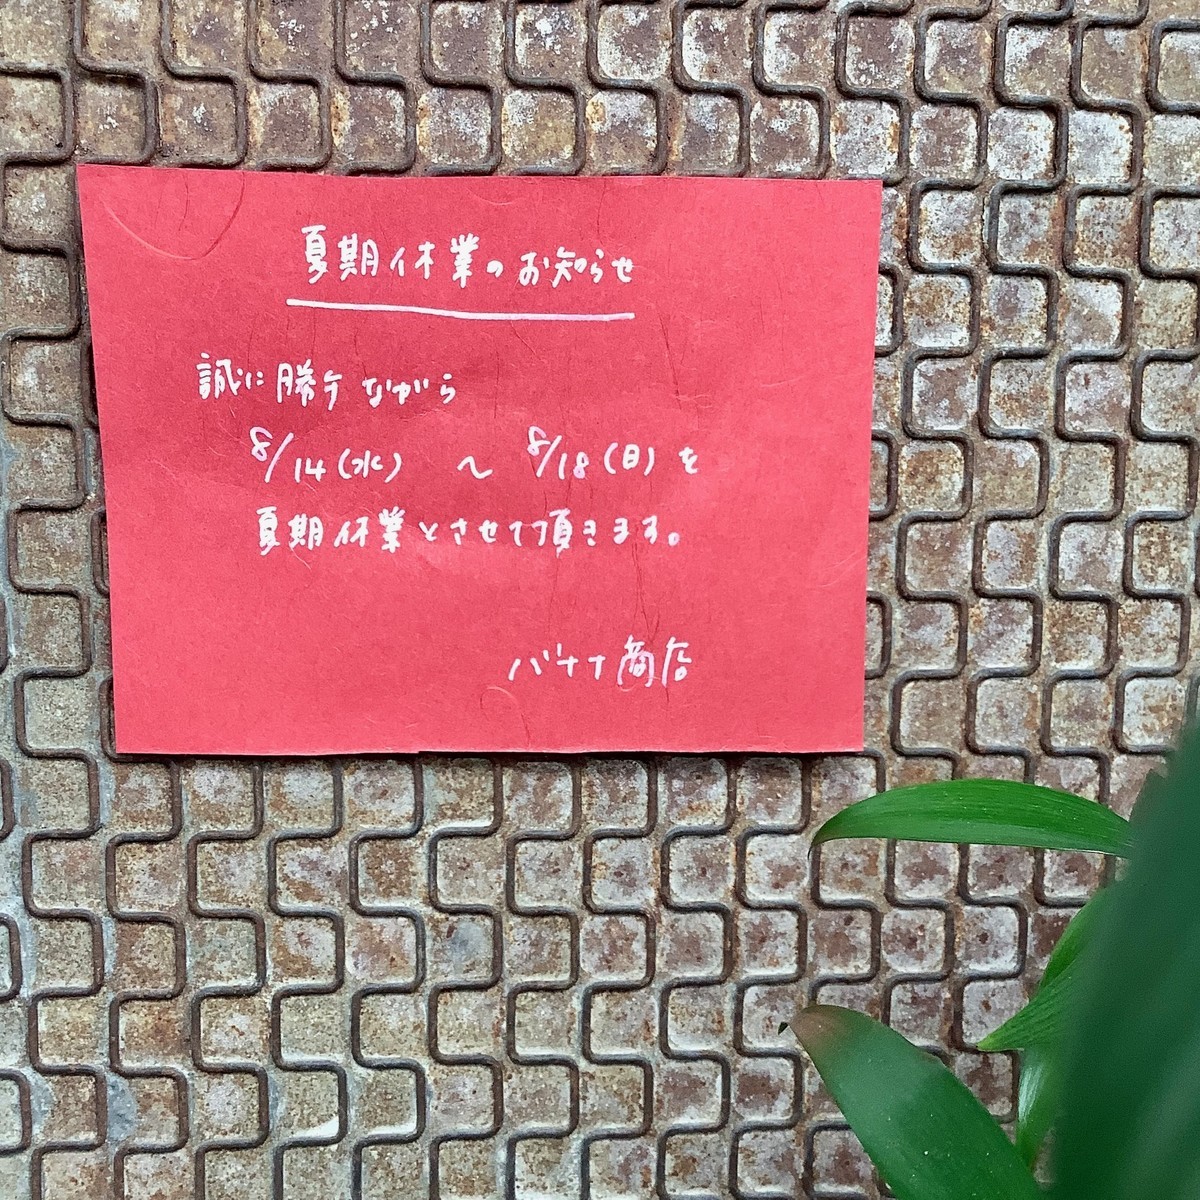 夏期休業のお知らせ
誠に勝手ながら
8/14(水) ～ 8/18(日)を
夏期休業とさせて頂きます。
バナナ商店